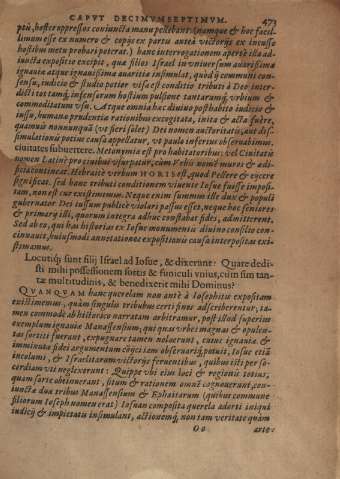 CAPVT DECIMVMSEPTIMVM. 473
ptū, hostes oppressos coniuncta manu potebant: (namque & hoc facil-
limum esse ex numero & copijs ex partu anteà victorijs ex incusso
hostibus metu probari poterat.) hanc interrogationem apertè illa ad-
iuncta expositio excipit, quæ filios Israel in vniuersum auarissimæ
ignauiæ atque ignauissimæ auaritiæ insimulat, quòd ij communi con-
sensu, iudicio & studio potior visa est conditio tributi à Deo inter-
dicti tot tamq; infensarum hostium pulsione tantarumq; vrbium &
commoditatum vsu. Atque omnia hæc diuino posthabito iudicio &
iussu, humanæ prudentiæ rationibus excogitata, inita & acta fuére,
quamuis nonnunquā (vt fieri solet) Dei nomen auctoritatis, aut dis-
simulationis potius causa appelletur, vt paulò inferius obseruabimus.
ciuitates subuertere. Metonymia est pro habitatoribus: vel Ciuitatis
nomen Latinè pro ciuibus vsurpatur, cùm Vrbis nomē muros & ædi-
ficia contineat. Hebraicè verbum HORIS est, quod Pellere & eijcere
significat. sed hanc tributi conditionem viuente Iosue fuisse imposi-
tam, non est cur existimemus. Neque enim summus ille dux & populi
gubernator Dei iussum publicè violari passus esset, neque hoc seniores
& primarij illi, quorum integra adhuc constabat fides, admitterent.
Sed ab eo, qui has historias ex Iosue monumentis diuino consilio con-
cinnauit, huiusmodi annotationes expositionis causa interpositas exi-
stimamus.
Locutiq́; sunt filij Israel ad Iosue, & dixerunt: Quare dedi-
sti mihi possessionem sortis & funiculi vnius, cùm sim tan-
tæ multitudinis, & benedixerit mihi Dominus?
QVANQVAM hanc querelam non antè à Iosepho expositam
existimemus, quàm singulis tribubus certi fines adscriberentur, ta-
men commodè ab historico narratam arbitramur, post illud superius
exemplum ignauiæ Manassensium, qui quas vrbes magnas & opulen-
tas sortiti fuerant, expugnare tamen noluerunt, cuius ignauiæ &
imminutæ fidei argumentum e ijci iam obseruariq́; potuit, Iosue etiā
incolumi, & Israelitarum victorijs feruentibus, quibus isti per so-
cordiam vti neglexerunt: Quippe vbi eius loci & regionis totius,
quam sorte obtinuerant, situm & rationem omnē cognouerunt, con-
iuncta duæ tribus Manassensium & Ephaitarum (quibus commune
filiorum Ioseph nomen erat) Iosuam composita querela adorti iniqui
iudicij & impietatis insimulant, actionemq́; non tam veritate quàm
Oo arte: